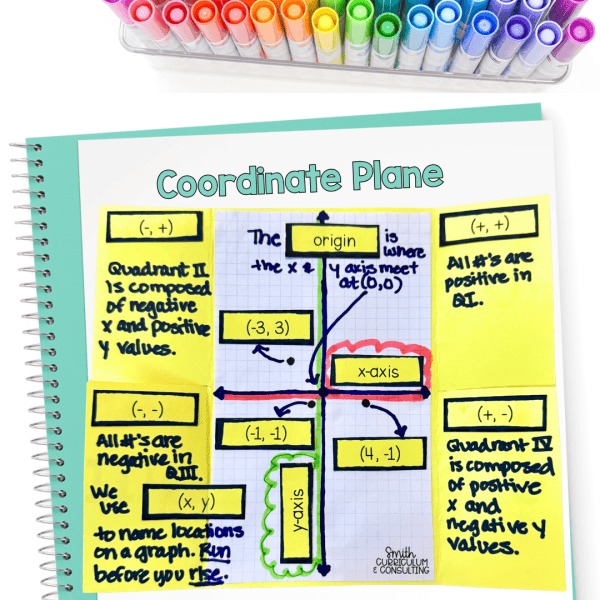 Coordinate Plane
(-, +)
Quadrant II
is composed
of negative
x and positive
y values.
The origin is
where
the x & y axis meet
at (0,0)
(+, +)
All #'s are
positive in
QI.
(-3, 3)
x-axis
(-, -)
All #'s are
negative in
QIII.
We
use (x, y)
to name locations
on a graph. Run
before you rise.
(-1, -1)
(4, -1)
y-axis
(+, -)
Quadrant IV
is composed
of positive
x and
negative y
values.
Smith
CURRICULUM
& CONSULTING